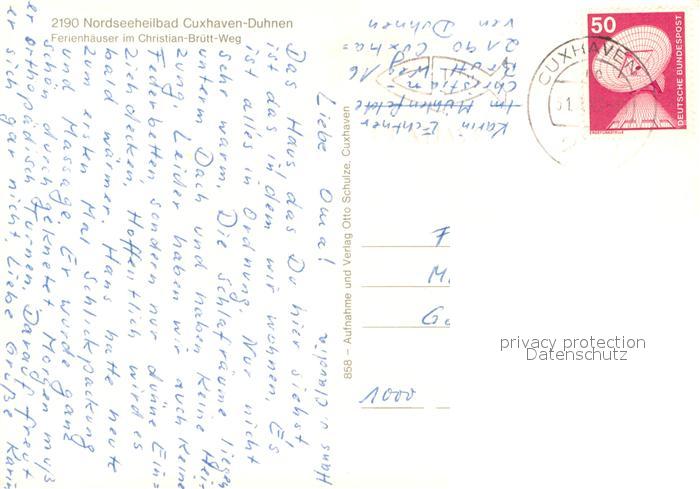 2190 Nordseeheilbad Cuxhaven-Duhnen
Ferienhäuser im Christian-Brütt-Weg
Liebe Oma!
Das Haus, das Du hier siehst,
ist das in dem wir wohnen. Es
ist alles in Ordnung. Nur nicht
sehr warm. Die Schlafräume liegen
unterm Dach und haben keine Hei-
zung. Leider haben wir auch keine
Federbetten, sondern nur dünne Ein=
ziehdecken. Hoffentlich wird es
bald wärmer. Hans hatte heute
zum ersten Mal Schlickpackung
und Massage. Er wurde ganz
schön durchgeknetet. Morgen muß
er orthopädisch turnen. Darauf freut
er sich gar nicht. Liebe Grüße Karin
Hans Claudia
858 – Aufnahme und Verlag Otto Schulze, Cuxhaven
Karin Echtner
Im Mühlenfelde
Christian=
Brütt Weg 16
2190 Cuxha=
ven Duhnen
50
DEUTSCHE BUNDESPOST
ERDEFUNKSTELLE
CUXHAVEN
F
M
G
1000
privacy protection
Datenschutz